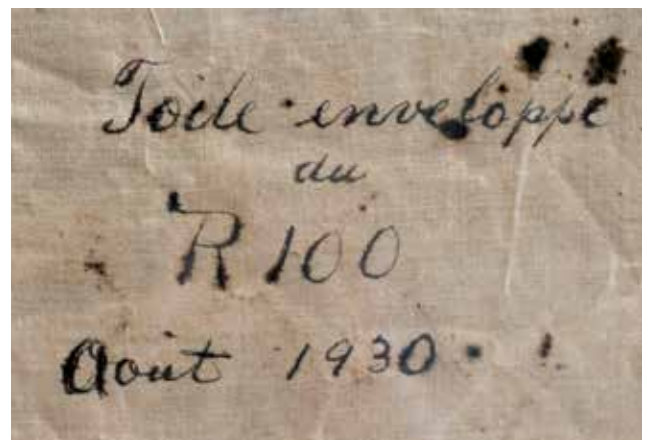 Toile-enveloppe
du
R100
Août 1930.